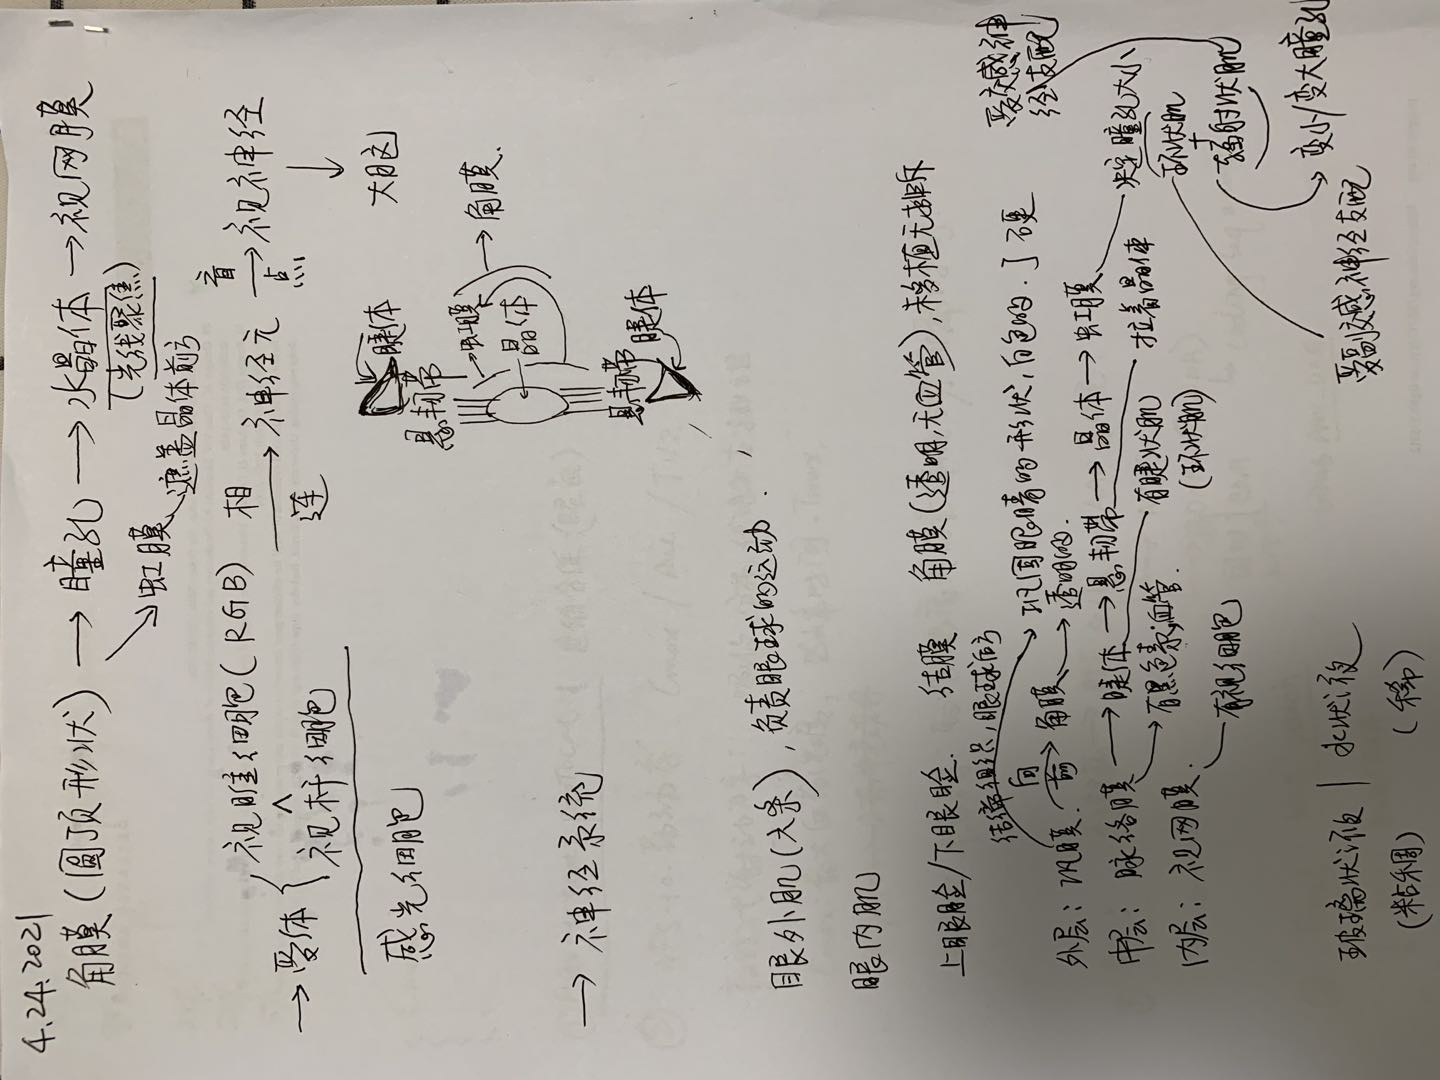 4.24.2021
角膜(圆顶形状) → 瞳孔 → 水晶体 → 视网膜
(光线聚焦)
→ 虹膜 遮盖晶体前方
→ 受体
视锥细胞(RGB)
^
视杆细胞
相连 →
神经元
盲点 →
视神经
↓
大脑
感光细胞
睫体
悬韧带
→虹膜
晶体
→ 角膜.
悬韧带
睫体
→ 神经系统
眼外肌(六条), 负责眼球的运动.
眼内肌
上眼睑/下眼睑. 结膜 角膜(透明,无血管),移植无排斥
结缔组织,眼球后方
外层: 巩膜. 向前 → 角膜 → 透明的.
巩固眼睛的形状,白色的. 硬
中层: 脉络膜 → 睫体 → 悬韧带 → 晶体 → 虹膜
有黑色素,血管.
有睫状肌
(环状肌)
拉着晶体
决定瞳孔大小
环状肌
+
辐射状肌
受交感神
经支配
变小/变大瞳孔
受副交感神经支配
内层: 视网膜.
有视细胞
玻璃状液 | 水状液
(粘稠) (稀)